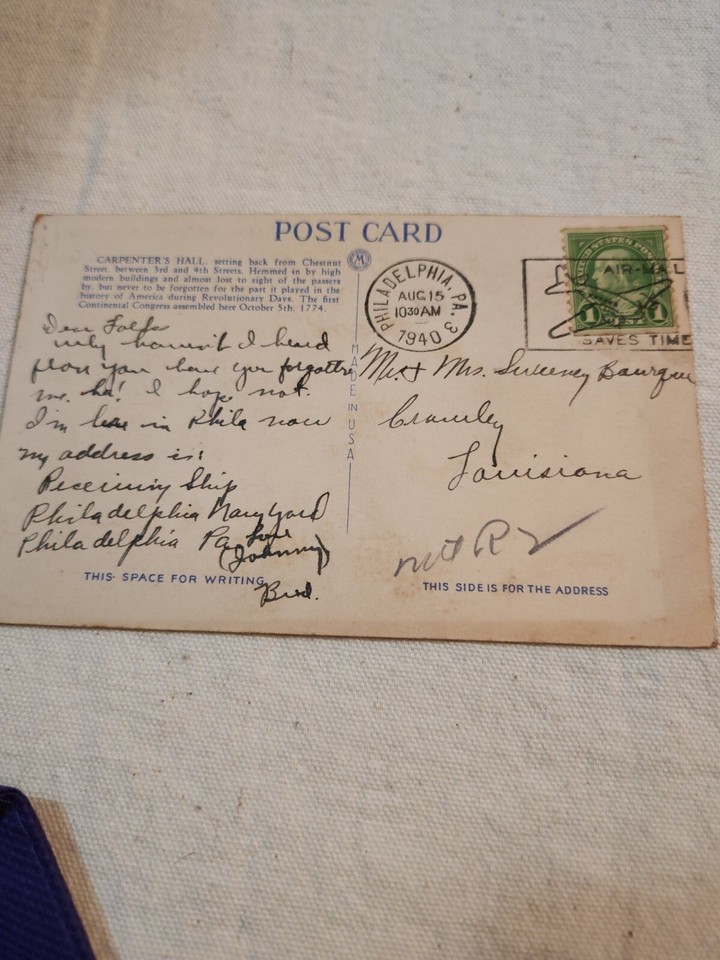 POST CARD
CARPENTER'S HALL, setting back from Chestnut
Street, between 3rd and 4th Streets. Hemmed in by high
modern buildings and almost lost to sight of the passers
by, but never to be forgotten for the part it played in the
history of America during Revolutionary Days. The first
Continental Congress assembled here October 5th, 1774.
Dear Folks
why haven't I heard
from you have you forgotten
me. ha! I hope not.
I'm here in Phila now
my address is:
Receiving Ship
Philadelphia Navy Yard
Philadelphia Pa
Love
(Johnny)
Bud.
THIS SPACE FOR WRITING
M
MADE IN USA
PHILADELPHIA, PA. 3
AUG 15
1030 AM
1940
UNITED STATES POSTAGE
1 CENT 1
AIR-MAIL
SAVES TIME
Mr. & Mrs. Sweeney Bourque
Crowley
Louisiana
R 2
THIS SIDE IS FOR THE ADDRESS